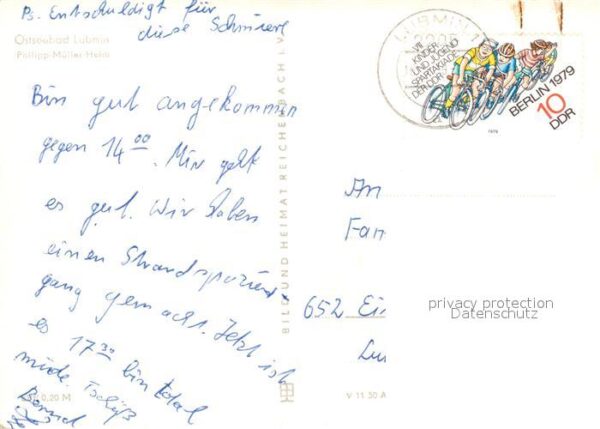 Ps. Entschuldigt für
diese Schmiere
Ostseebad Lubmin
Philipp-Müller-Heim
Bin gut angekommen
gegen 14 00. Mir geht
es gut. Wir haben
einen Strandspazier-
gang gemacht. Jetzt ist
es 17 30 bin total
müde. Tschüß
Bernd
0,20 M
BILD UND HEIMAT REICHENBACH I.V.
V 11 50 A
LUBMIN
VII
KINDER
UND JUGEND
SPARTAKIADE
DER DDR
BERLIN 1979
10
DDR
1979
An
Fam
652 Ei
Lu
privacy protection
Datenschutz